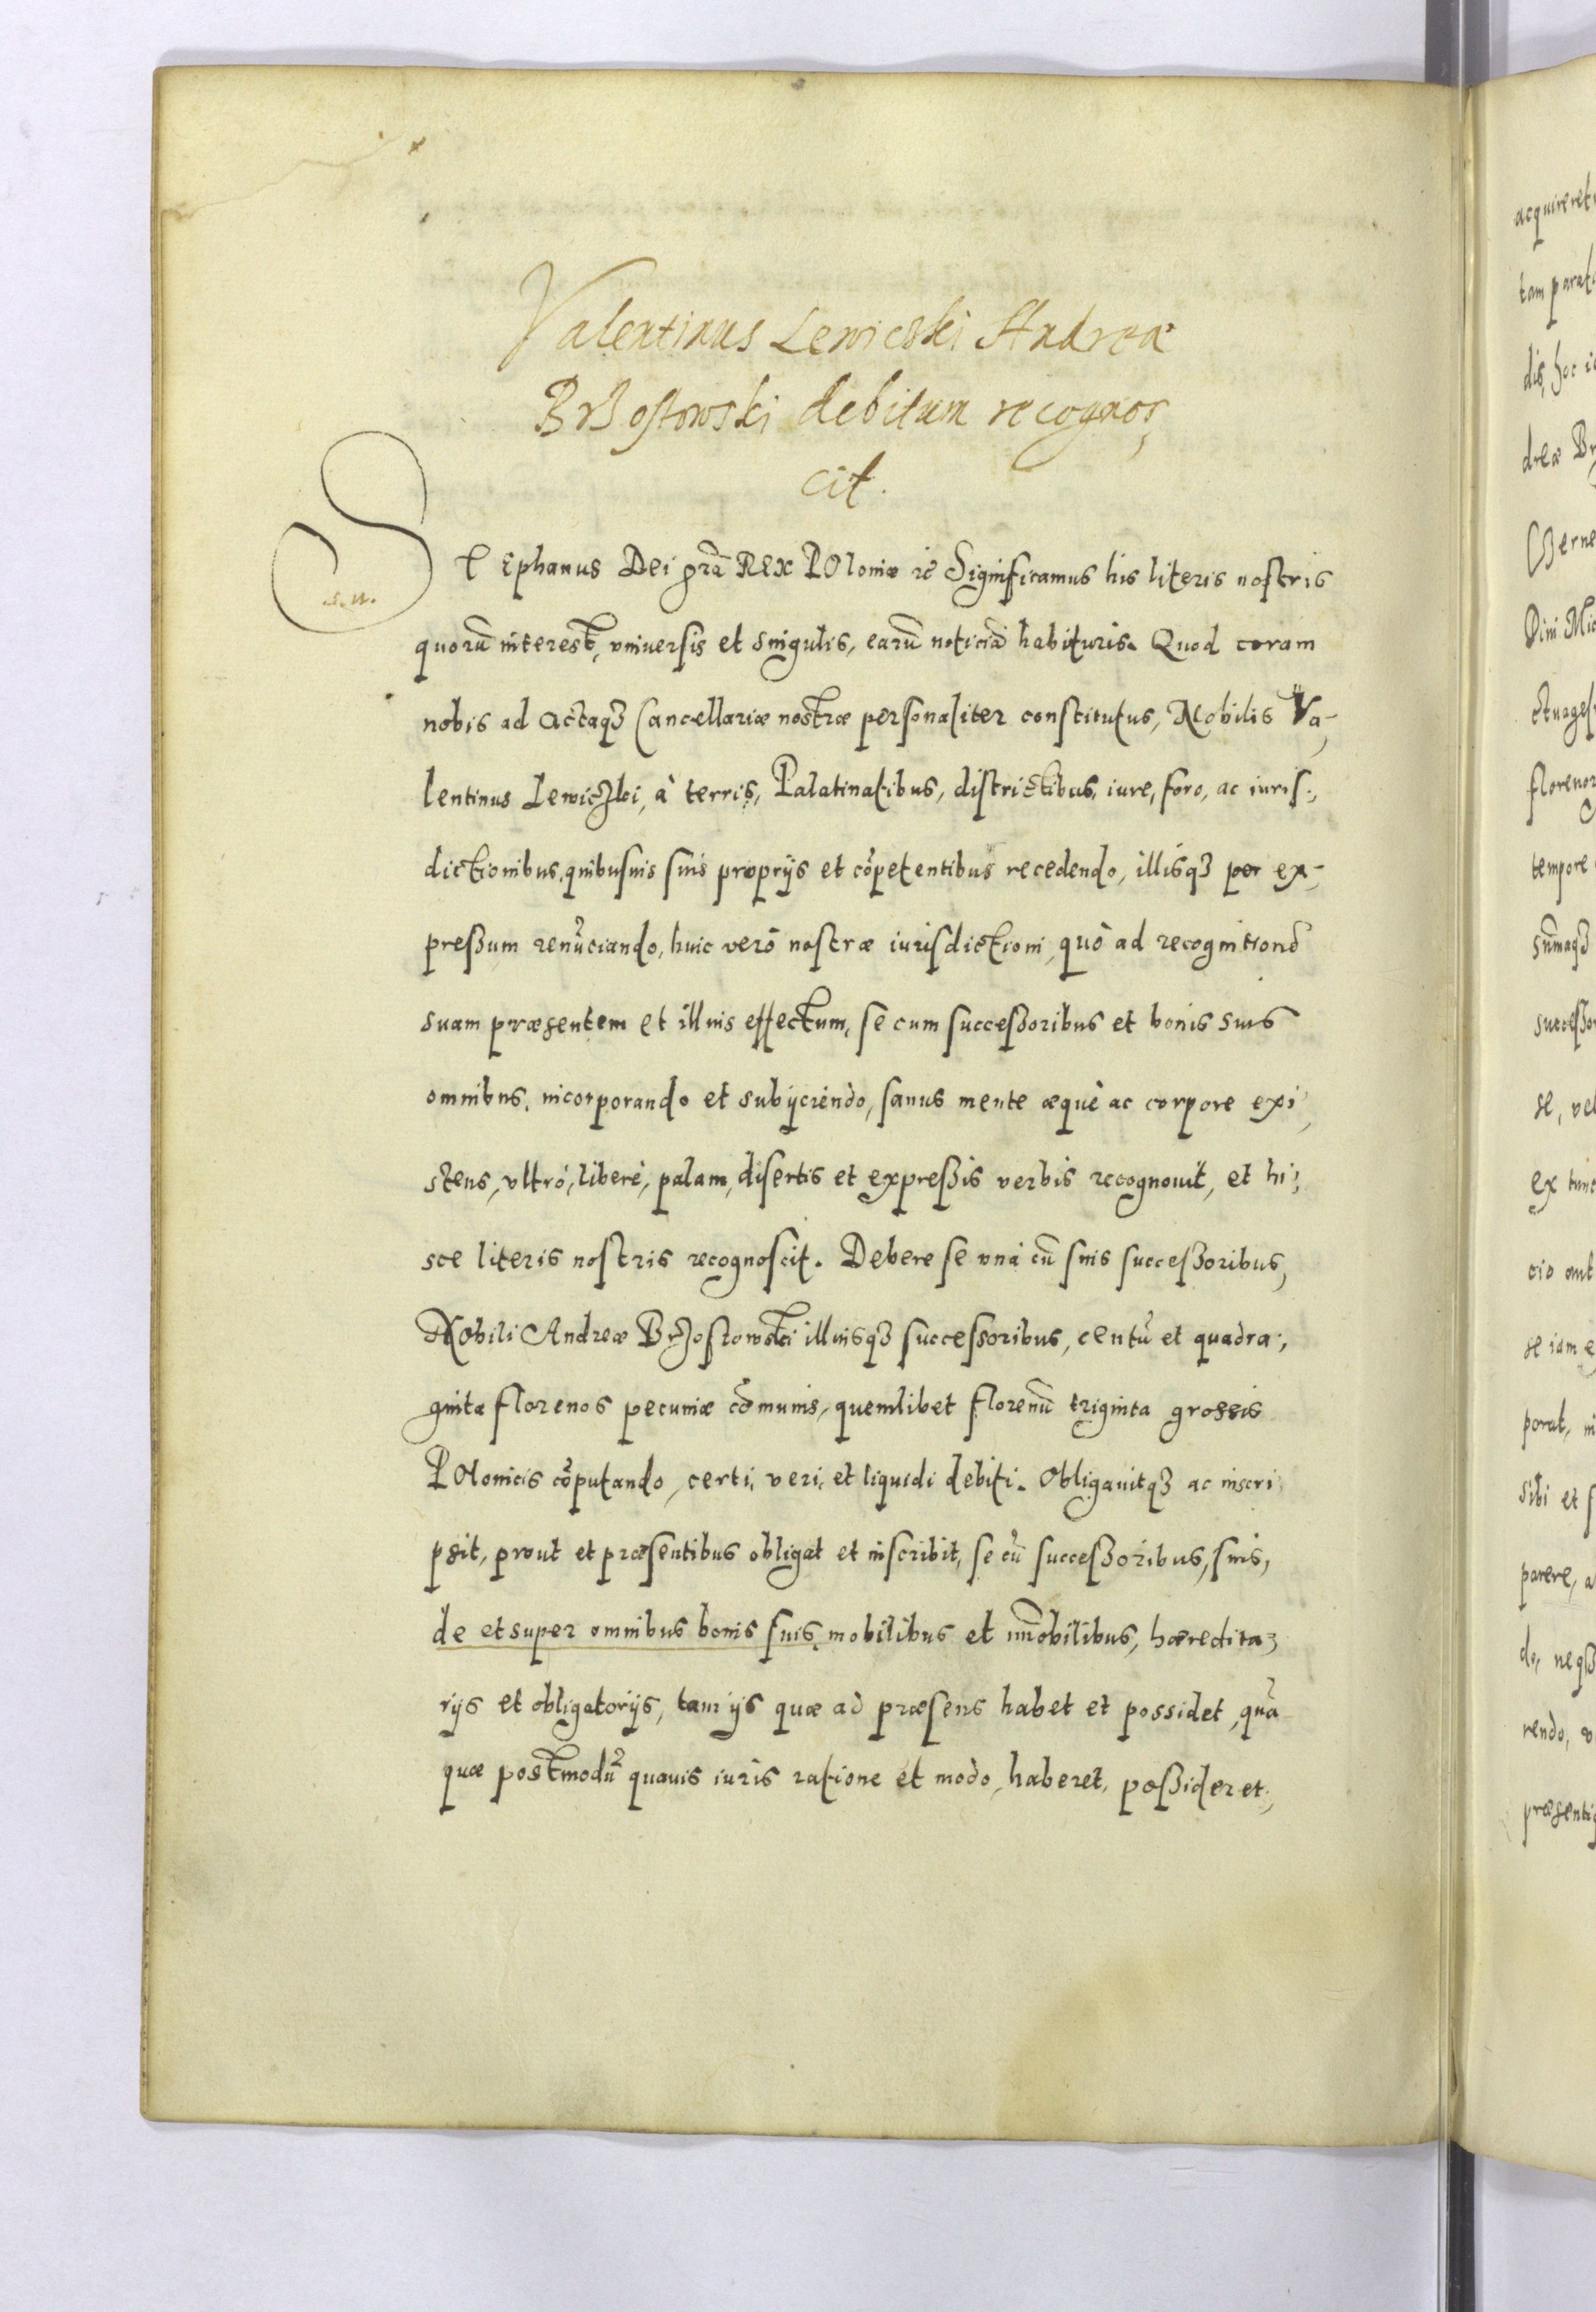 Valentinus Lewicski Andreæ
Brzostowski debitum recognos,
cit.
STEphanus Dei grã REX POloniæ rē Significamus his literis nostris
s. n.
quorũ interest, vniuersis et singulis, earũ noticiã habituris. Quod coram
nobis ad actaqȝ Cancellariæ nostræ personaliter constitutus, Nobilis Va-
lentinus Lewiczki, à terris, Palatinatibus, districtibus, iure, foro, ac iuris-,
dictionibus, quibusuis suis proprijs et cõpetentibus recedendo, illisqȝ per ex-,
preßum renũciando, huic verò nostræ iurisdictioni, quò ad recognitionẽ
suam præsentem et illius effectum, se cum succeßoribus et bonis suis
omnibus, incorporando et subijciendo, sanus mente æquè ac corpore exi,
stens, vltrò, liberè, palam, disertis et expreßis verbis recognouit, et hi,
sce literis nostris recognoscit. Debere se vnà cũ suis succeßoribus,
Nobili Andreæ Brzostowski illiusqȝ successoribus, centũ et quadra,
ginta florenos pecuniæ cõmunis, quemlibet florenũ triginta grossis
POlonicis cõputando, certi, veri, et liquidi debiti. Obligauitqȝ ac inscri
psit, prout et præsentibus obligat et inscribit, se cũ succeßoribus, suis,
de et super omnibus bonis suis mobilibus et im̃obilibus, hæredita,
rijs et obligatorijs, tam ijs quæ ad præsens habet et possidet, quã
quæ postmodũ quauis iuris ratione et modo, haberet, poßideret,
acquireret
dreæ Br
tempore
ex tunc
sibi et
parere, a